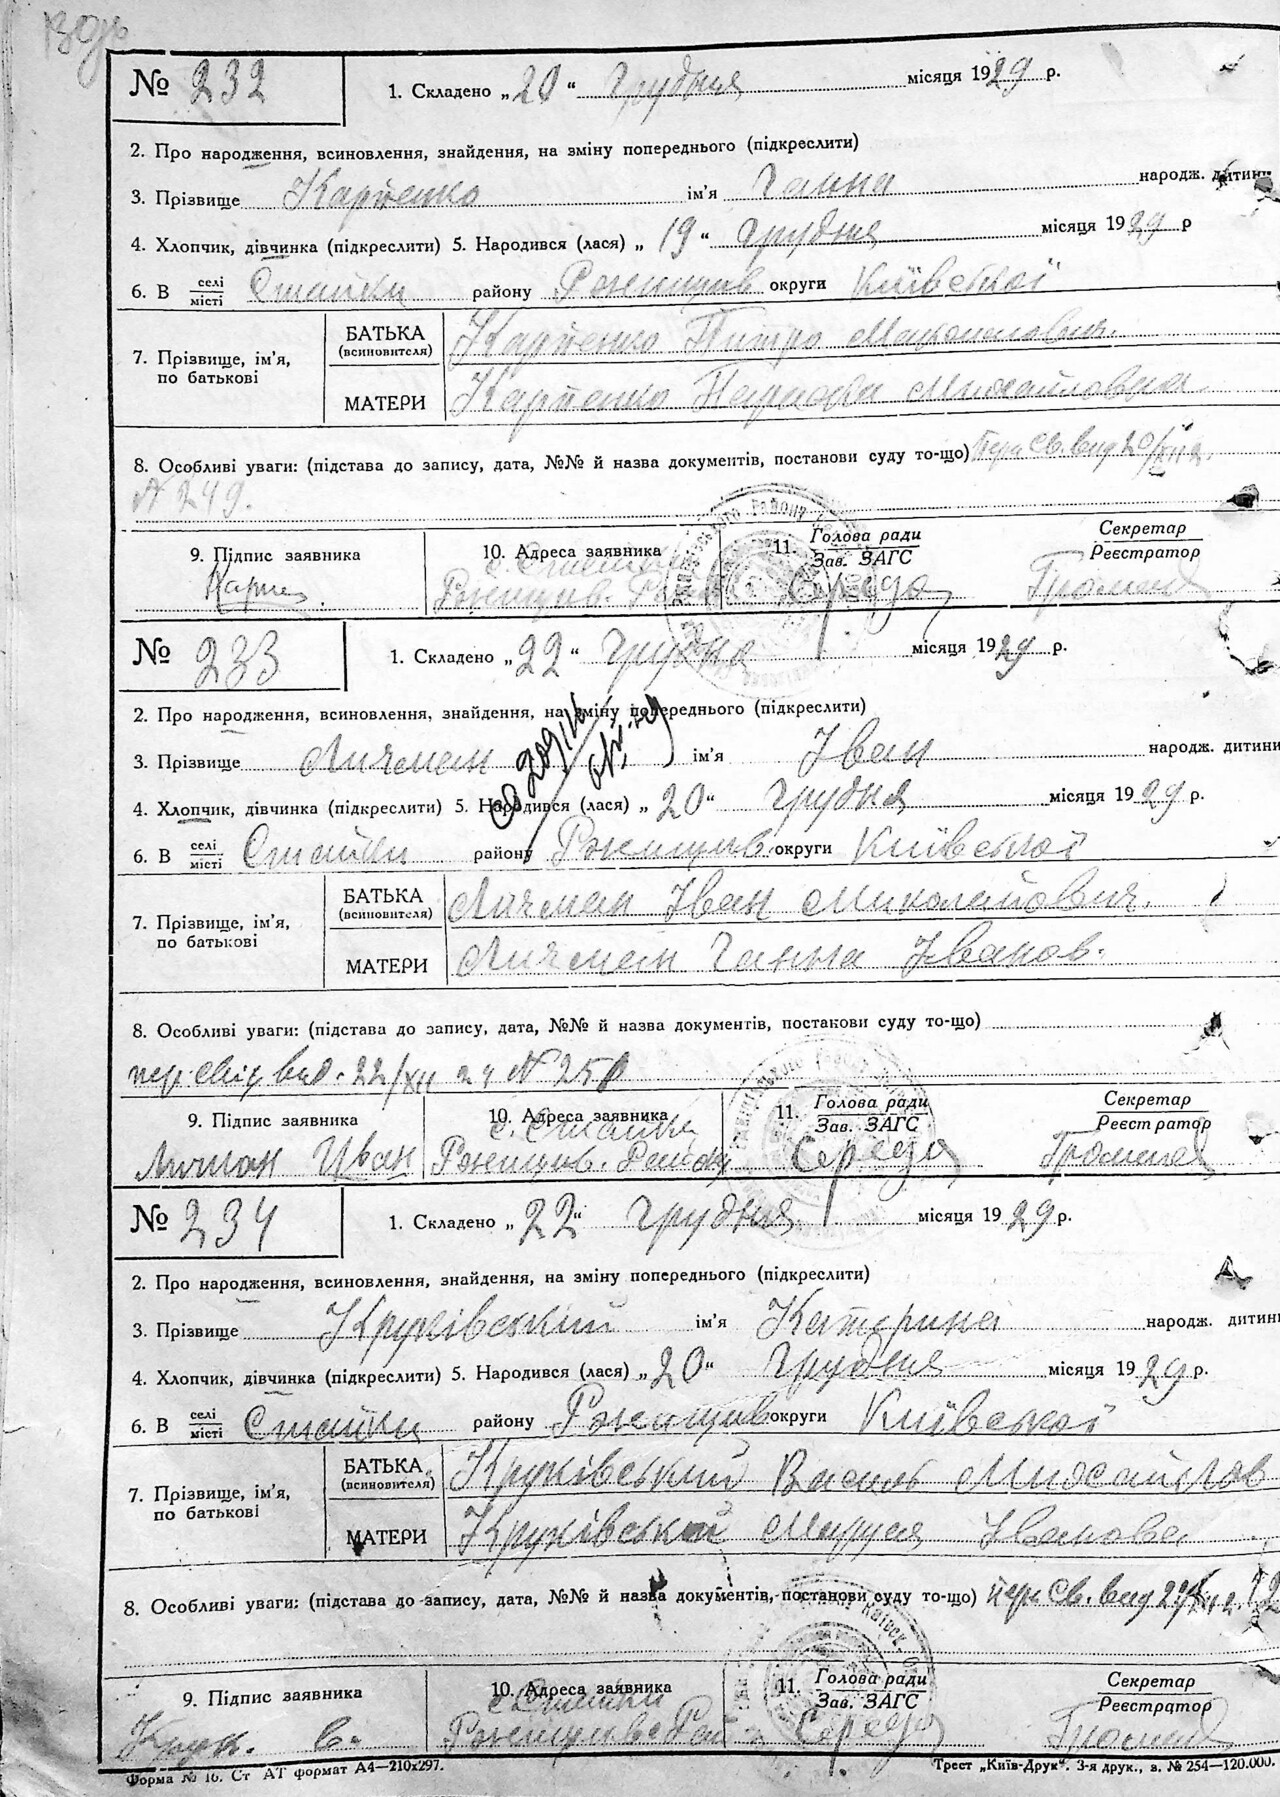 № 232
1. Складено „20“ Грудня місяця 1929 р.
2. Про народження, всиновлення, знайдення, на зміну попереднього (підкреслити)
3. Прізвище Карпенко ім'я Ганна народж. дитини
4. Хлопчик, дівчинка (підкреслити) 5. Народився (лася) „19“ Грудня місяця 1929 р
6. В селі/місті Стайки району Ржищів округи Київської
7. Прізвище, ім'я, по батькові
БАТЬКА (всиновителя) Карпенко Питро
МАТЕРИ Карпенко Параска Михайловна
8. Особливі уваги: (підстава до запису, дата, №№ й назва документів, постанови суду то-що) Перв Св. вид 20/XII 2
№ 249.
9. Підпис заявника
10. Адреса заявника
11. Голова ради
Зав. ЗАГС
Секретар
Реєстратор
с. Стайки
Ржищив. Рай
Середа
№ 233
1. Складено „22“ Грудня місяця 1929 р.
2. Про народження, всиновлення, знайдення, на зміну попереднього (підкреслити)
3. Прізвище Личман ім'я Іван народж. дитини
4. Хлопчик, дівчинка (підкреслити) 5. Народився (лася) „20“ Грудня місяця 1929 р.
6. В селі/місті Стайки району Ржищив округи Київської
7. Прізвище, ім'я, по батькові
БАТЬКА (всиновителя) Личман Іван Миколайович.
МАТЕРИ Личман Ганна Іванов.
8. Особливі уваги: (підстава до запису, дата, №№ й назва документів, постанови суду то-що)
пер. свід. вид. 22/XII 29 № 250
9. Підпис заявника
10. Адреса заявника
11. Голова ради
Зав. ЗАГС
Секретар
Реєстратор
с. Стайки
Личман Иван Ржищив. Району Середа
№ 234
1. Складено „22“ Грудня місяця 1929 р.
2. Про народження, всиновлення, знайдення, на зміну попереднього (підкреслити)
3. Прізвище Круківський ім'я Катерина народж. дитини
4. Хлопчик, дівчинка (підкреслити) 5. Народився (лася) „20“ Грудня місяця 1929 р.
6. В селі/місті Стайки району Ржищив округи Київської
7. Прізвище, ім'я, по батькові
БАТЬКА (всиновителя) Круківський Василь Михайлов
МАТЕРИ Круківська Маруся Іванова
8. Особливі уваги: (підстава до запису, дата, №№ й назва документів, постанови суду то-що) перв Св. вид
9. Підпис заявника
10. Адреса заявника
11. Голова ради
Зав. ЗАГС
Секретар
Реєстратор
с. Стайки
Крук. В. Ржищив Рай Середа
Форма № 16. Ст АТ формат А4—210х297.
Трест „Київ-Друк“. 3-я друк., в. № 254—120.000.